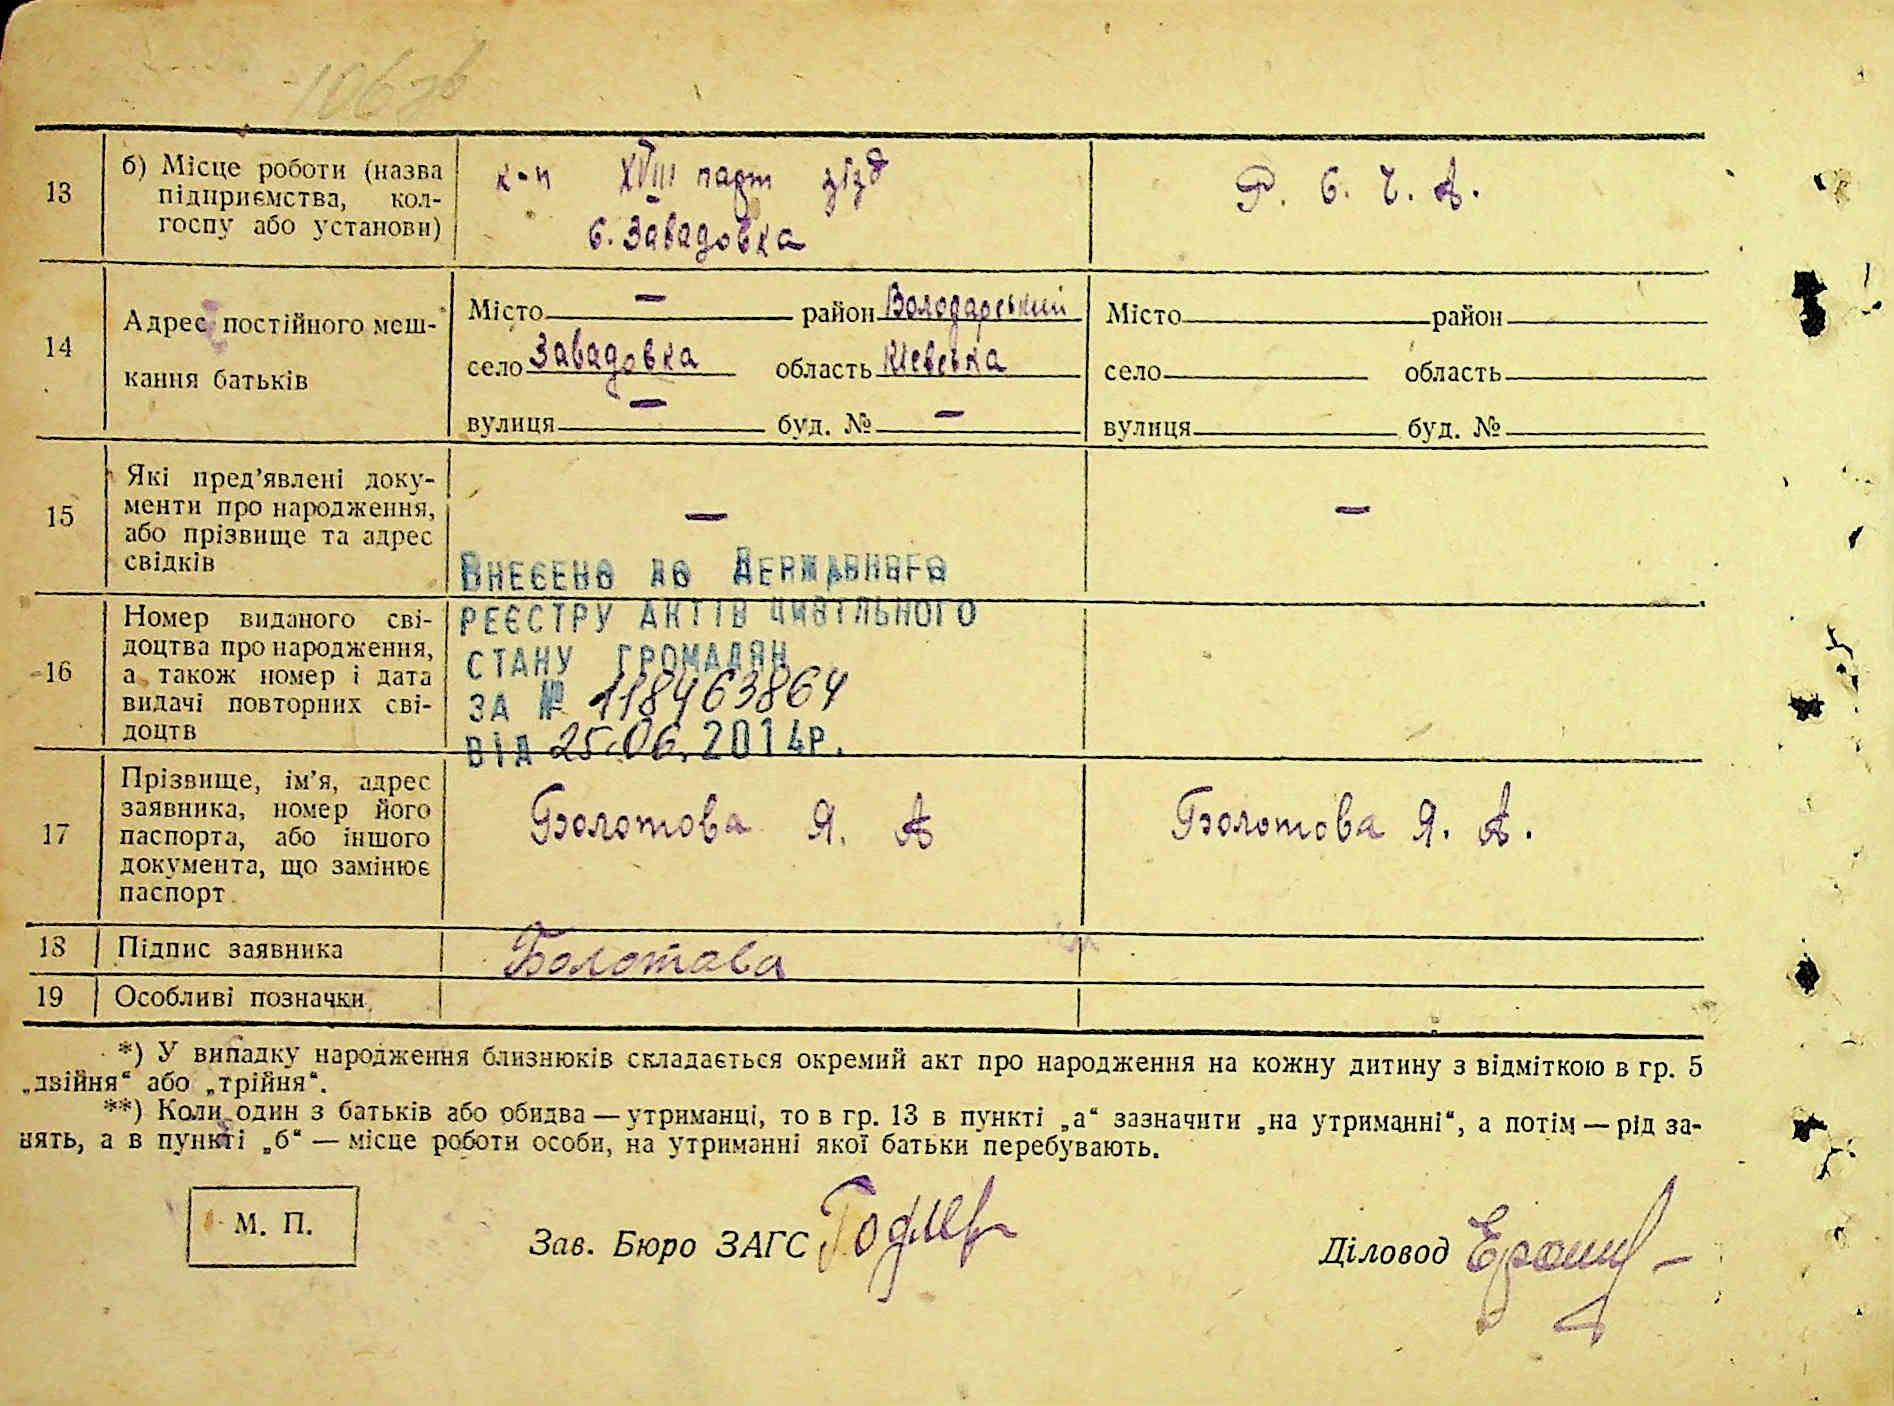 13
б) Місце роботи (назва
підприємства, кол-
госпу або установи)
к-п XVIII парт зізд
с. Завадовка
Р. С. Ч. А.
14
Адрес постійного меш-
кання батьків
Місто — район Володарський
село Завадовка область Кіевська
вулиця — буд. № —
Місто район
село область
вулиця буд. №
15
Які пред’явлені доку-
менти про народження,
або прізвище та адрес
свідків
—
—
Внесено до Державного
реєстру актів цивільного
стану громадян
за № 118463864
від 25.06.2014р.
16
Номер виданого сві-
доцтва про народження,
а також номер і дата
видачі повторних сві-
доцтв
17
Прізвище, ім’я, адрес
заявника, номер його
паспорта, або іншого
документа, що замінює
паспорт
Болотова Я. А
Болотова Я. А.
18 Підпис заявника Болотова
19 Особливі позначки
*) У випадку народження близнюків складається окремий акт про народження на кожну дитину з відміткою в гр. 5
„двійня“ або „трійня“.
**) Коли один з батьків або обидва — утриманці, то в гр. 13 в пункті „а“ зазначити „на утриманні“, а потім — рід за-
нять, а в пункті „б“ — місце роботи особи, на утриманні якої батьки перебувають.
М. П.
Зав. Бюро ЗАГС
Діловод